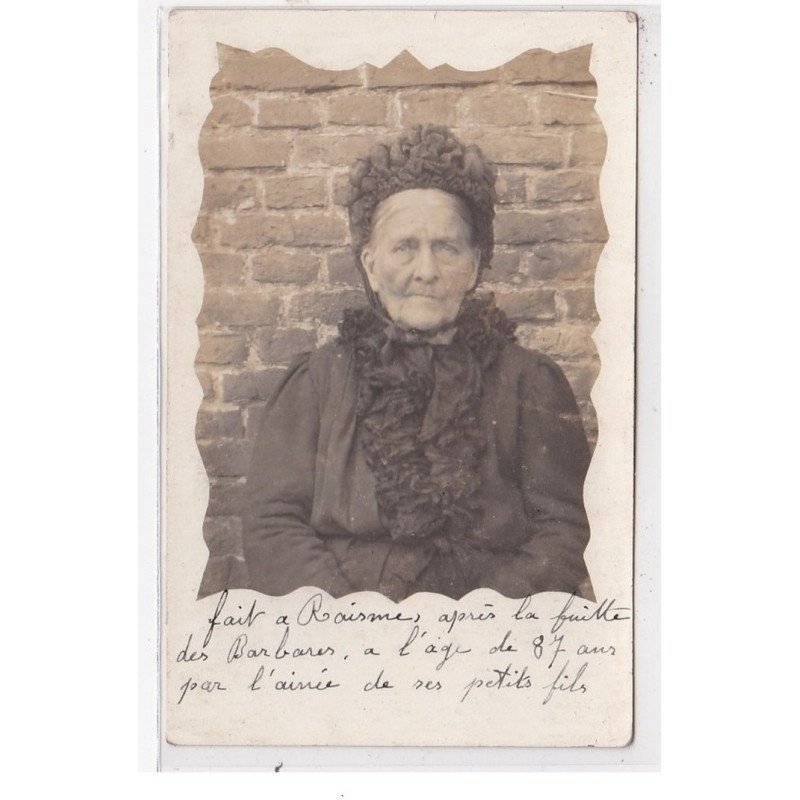 fait a Raismes, après la fuitte
des Barbares, a l'âge de 87 ans
par l'ainée de ses petits fils